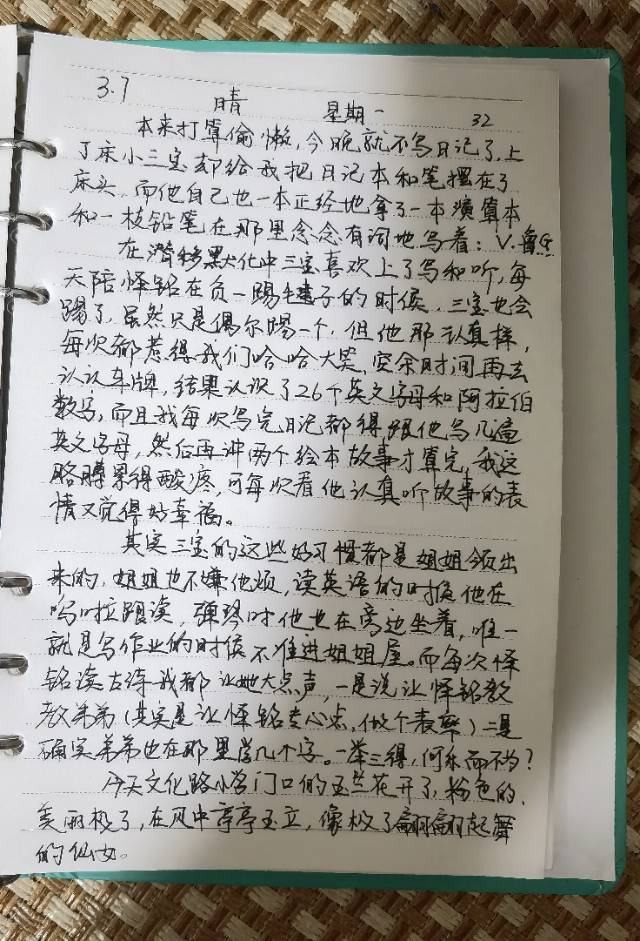 3.7 晴 星期一 32
本来打算偷懒,今晚就不写日记了,上
了床小三宝却给我把日记本和笔摆在了
床头,而他自己也一本正经地拿了一本演算本
和一枝铅笔在那里念念有词地写着:V.
在潜移默化中三宝喜欢上了写和听,每
天陪怿铭在负一踢毽子的时候,三宝也会
踢了,虽然只是偶尔踢一个,但他那认真样,
每次都惹得我们哈哈大笑,空余时间再去
认认车牌,结果认识了26个英文字母和阿拉伯
数字,而且我每次写完日记都得跟他写几遍
英文字母,然后再冲两个绘本故事才算完,我这
胳膊累得酸疼,可每次看他认真听故事的表
情又觉得好幸福。
其实三宝的这些好习惯都是姐姐领出
来的,姐姐也不嫌他烦,读英语的时候他在
呜啦跟读,弹琴时他也在旁边坐着,唯一
就是写作业的时候不准进姐姐屋。而每次怿
铭读古诗我都让她大点声,一是说让怿铭教
教弟弟(其实是让怿铭专心点,做个表率)二是
确实弟弟也在那里学几个字。一举三得,何乐而不为?
今天文化路小学门口的玉兰花开了,粉色的,
美丽极了,在风中亭亭玉立,像极了翩翩起舞
的仙女。